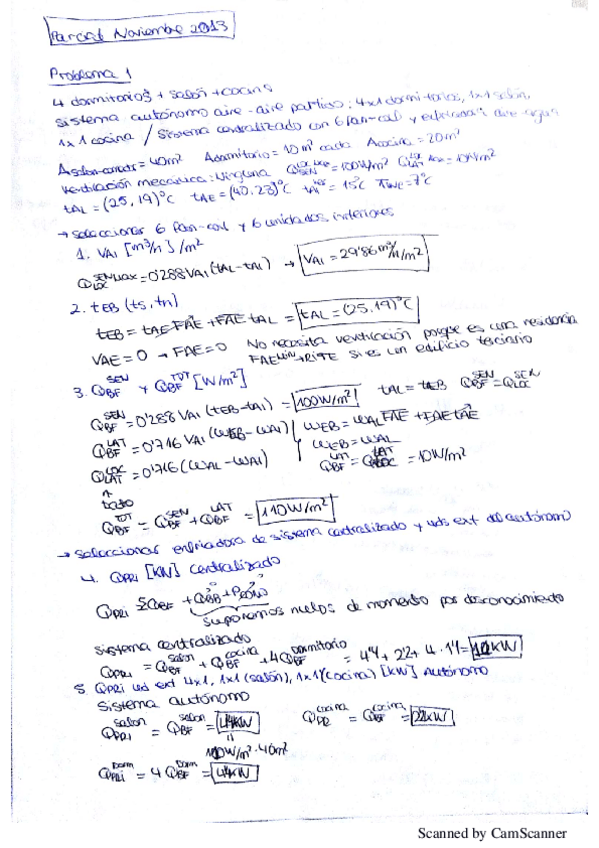 Parcial Noviembre 2013
Problema 1
4 dormitorios + salón + cocina
sistema autónomo aire-aire partido: 4x1 dormitorios, 1x1 salón,
1x1 cocina / sistema centralizado con 6 fan-coil y enfriadora aire-agua
A salón-comedor = 40m² Adormitorio = 10m² cada Acocina = 20m²
Ventilación mecánica: ninguna Q LOC SEN = 100W/m² Q LOC LAT = 10W/m²
tAL = (25, 19)°C tAE = (40, 23)°C tAI = 15°C = 7°C
→ seleccionar 6 fan-coil y 6 unidades interiores
1. VAI [m³/h] /m²
Q LOC SEN MAX = 0'288 VAI (tAL - tAI) → VAI = 29'86 m³/h/m²
2. tEB (ts, th)
tEB = tAE FAE + FAE tAL = tAL = (25, 19)°C
VAE = 0 → FAE = 0 No necesita ventilación porque es una residencia
FAE MIN → RITE si es un edificio terciario
3. QBF SEN y QBF TOT [W/m²]
QBF SEN = 0'288 VAI (tEB - tAI) = 100W/m² tAL = tEB QBF SEN = QLOC SEN
QBF LAT = 0'716 VAI (WEB - WAI) WEB = WAL FAE + FAE tAE
QLAT LOC = 0'716 (WAL - WAI) WEB = WAL
QBF LAT = QLOC LAT = 10W/m²
dato
QBF TOT = QBF SEN + QBF LAT = 110W/m²
→ seleccionar enfriadora de sistema centralizado y uds ext del autónomo
4. QPRI [KW] centralizado
QPRI = ΣQBF + QBB +
suponemos nulos de momento por desconocimiento
sistema centralizado
QPRI = QBF salón + QBF cocina + 4QBF Dormitorio = 4'4 + 2'2 + 4 · 1'1 =
5. QPRI ud ext 4x1, 1x1 (salón), 1x1 (cocina) [KW] Autónomo
sistema autónomo
QPRI salón = QBF salón = 4'4KW QPRI cocina = QBF cocina = 2'2KW
110W/m² · 40m²
QPRI Dorm = 4 QBF Dorm = 4'4KW
Scanned by CamScanner